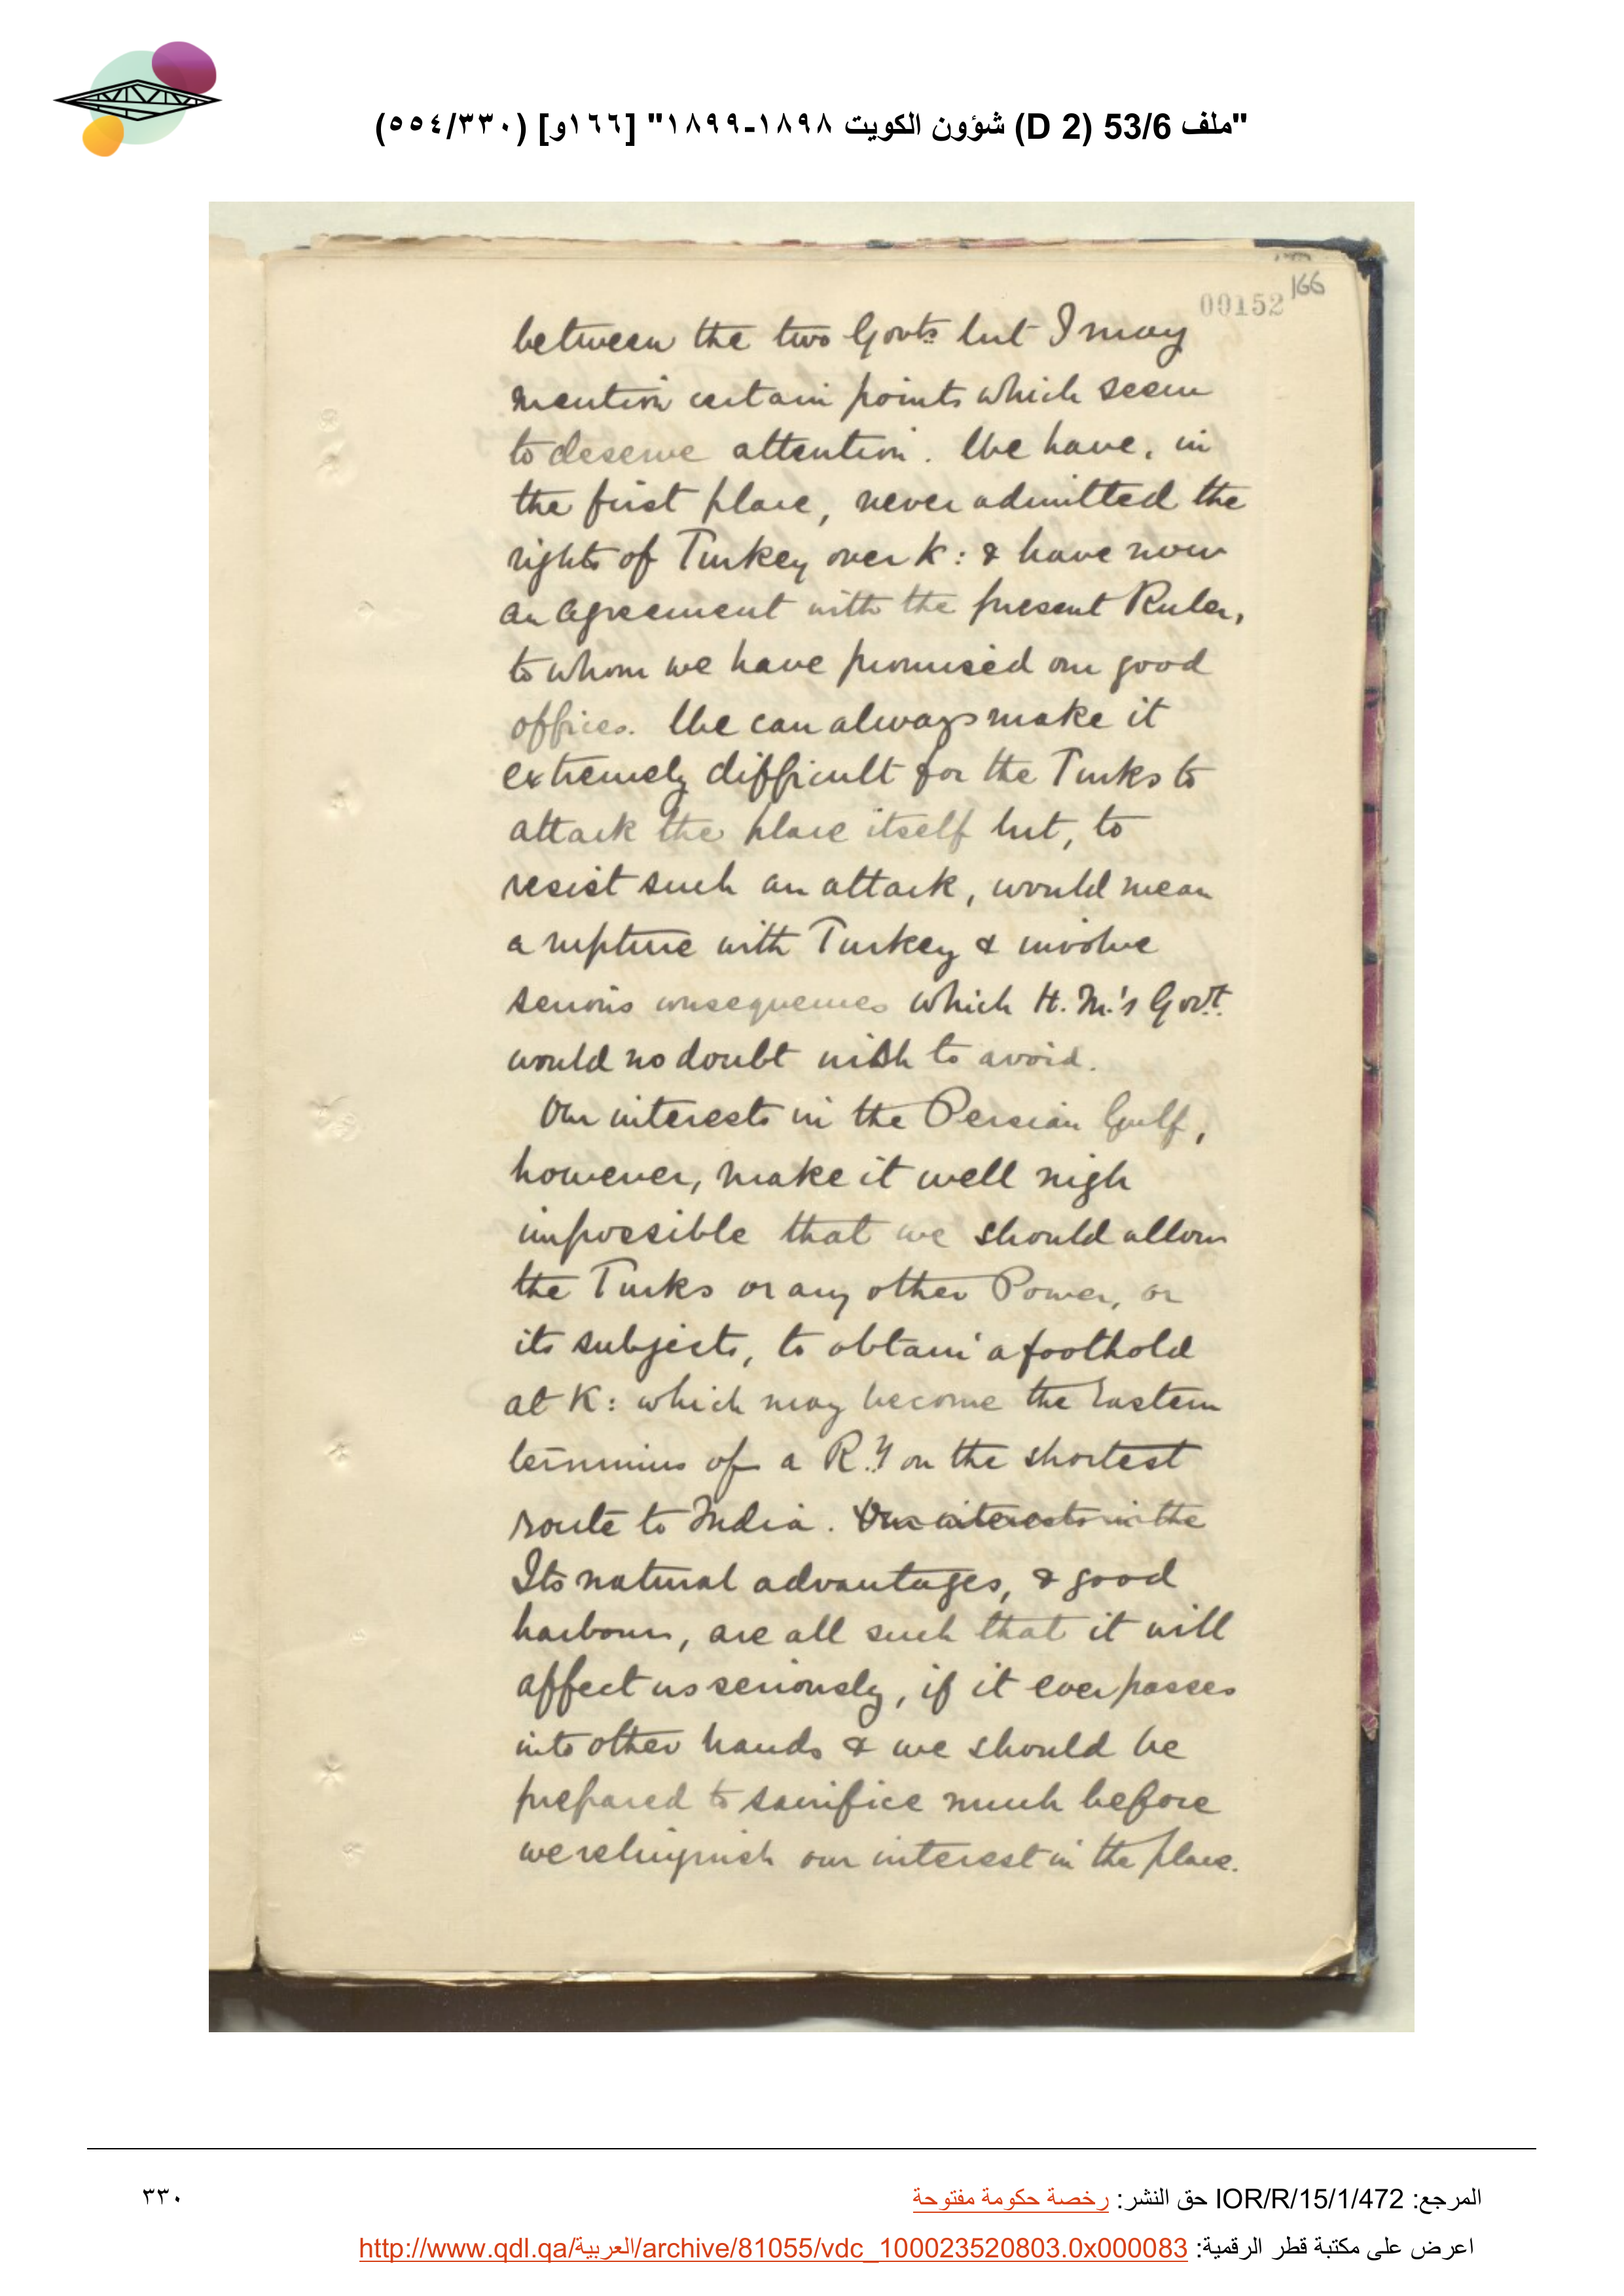 "ملف 53/6 (D 2) شؤون الكويت ١٨٩٨-١٨٩٩" [١٦٦و] (٥٥٤/٣٣٠)
166
00152
between the two Govts but I may
mention certain points which seem
to deserve attention. We have, in
the first place, never admitted the
rights of Turkey over K: & have now
an agreement with the present Ruler,
to whom we have promised our good
offices. We can always make it
extremely difficult for the Turks to
attack the place itself but, to
resist such an attack, would mean
a rupture with Turkey & involve
serious consequences which H.M.'s Govt.
would no doubt wish to avoid.
Our interests in the Persian Gulf,
however, make it well nigh
impossible that we should allow
the Turks or any other Power, or
its subjects, to obtain a foothold
at K: which may become the Eastern
terminus of a Ry on the shortest
route to India. Our interests in the
Its natural advantages, & good
harbour, are all such that it will
affect us seriously, if it ever passes
into other hands & we should be
prepared to sacrifice much before
we relinquish our interest in the place.
المرجع: IOR/R/15/1/472 حق النشر: رخصة حكومة مفتوحة
٣٣٠
اعرض على مكتبة قطر الرقمية: http://www.qdl.qa/العربية/archive/81055/vdc_100023520803.0x000083